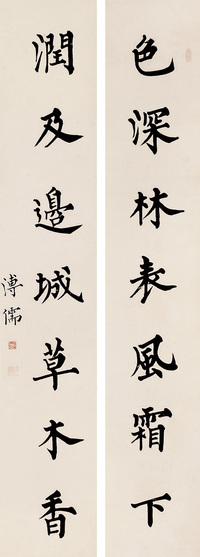 色深林表風霜下
潤及邊城草木香
溥儒